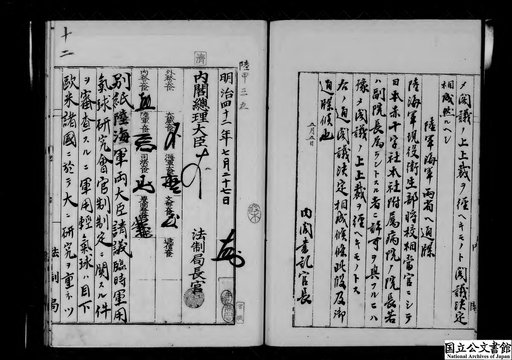 メ閣議ノ上上裁ヲ経ヘキモノト閣議決定
相成然ルヘシ
陸軍海軍両省ヘ通牒
陸海軍現役衛生部将校相当官ニシテ
日本赤十字社本社附属病院ノ院長若
ハ副院長ラントスル者ニ許可ヲ与フルニハ
予メ閣議ノ上上裁ヲ経ヘキモノトス
右ノ通閣議決定相成候條此段及御
通牒候也
五月五日
内閣書記官長
十二
陸甲三九
明治四十二年七月二十七日
内閣総理大臣
法制局長官
外務大臣
大蔵大臣
海軍大臣
文部大臣
逓信大臣
内務大臣
陸軍大臣
司法大臣
農商務大臣
別紙陸海軍両大臣請議臨時軍用
気球研究会官制制定ニ関スル件
ヲ審査スルニ軍用軽気球ハ目下
欧米諸国ニ於テ大ニ研究ヲ重ネツ
法制局
国立公文書館
National Archives of Japan